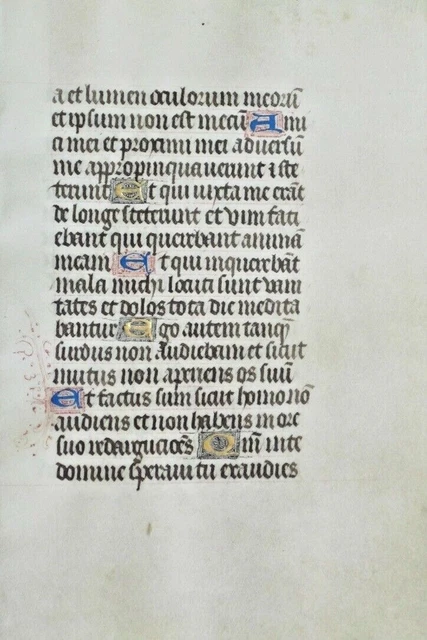 a et lumen oculorum meorū
et ipsum non est mecū Ami
ci mei et proximi mei adversū
me appropinquaverunt i ste
terunt Et qui iuxta me erāt
de longe steterunt et vim faci
ebant qui querebant animā
meam Et qui inquirebāt
mala michi locuti sunt vani
tates et dolos tota die medita
bantur Ego autem tanq̄
surdus non audiebam et sicut
mutus non aperiens os suū
Et factus sum sicut homo nō
audiens et non habens in ore
suo redargucioēs Qm̄ in te
domine speravi tu exaudies